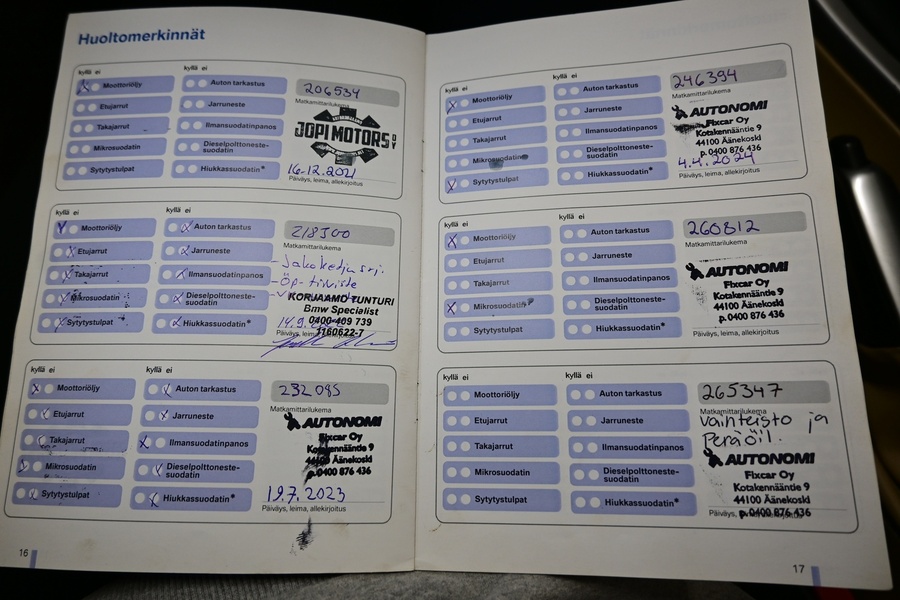 Huoltomerkinnät
kyllä ei kyllä ei
Moottoriöljy Auton tarkastus 206534
Matkamittarilukema
Etujarrut Jarruneste
Takajarrut Ilmansuodatinpanos JOPI MOTORS OY
Mikrosuodatin Dieselpolttoneste-
suodatin
Sytytystulpat Hiukkassuodatin* 16-12.2021
Päiväys, leima, allekirjoitus
kyllä ei kyllä ei
Moottoriöljy Auton tarkastus 218300
Matkamittarilukema
Etujarrut Jarruneste - Jakoketju srj.
Takajarrut Ilmansuodatinpanos - Öp-tiiviste
Mikrosuodatin Dieselpolttoneste-
suodatin
KORJAAMO TUNTURI
Bmw Specialist
Sytytystulpat Hiukkassuodatin* 0400-409 739
3160622-7
Päiväys, leima, allekirjoitus
kyllä ei kyllä ei
Moottoriöljy Auton tarkastus 232085
Matkamittarilukema
Etujarrut Jarruneste AUTONOMI
Fixcar Oy
Takajarrut Ilmansuodatinpanos Kotakennääntie 9
44100 Äänekoski
Mikrosuodatin Dieselpolttoneste-
suodatin
p.0400 876 436
Sytytystulpat Hiukkassuodatin* 19.7.2023
Päiväys, leima, allekirjoitus
16
kyllä ei kyllä ei
Moottoriöljy Auton tarkastus 246394
Matkamittarilukema
Etujarrut Jarruneste AUTONOMI
Fixcar Oy
Takajarrut Ilmansuodatinpanos Kotakennääntie 9
44100 Äänekoski
Mikrosuodatin Dieselpolttoneste-
suodatin
p.0400 876 436
4.4.2024
Sytytystulpat Hiukkassuodatin*
Päiväys, leima, allekirjoitus
kyllä ei kyllä ei
Moottoriöljy Auton tarkastus 260812
Matkamittarilukema
Etujarrut Jarruneste AUTONOMI
Fixcar Oy
Takajarrut Ilmansuodatinpanos Kotakennääntie 9
44100 Äänekoski
Mikrosuodatin Dieselpolttoneste-
suodatin
p.0400 876 436
Sytytystulpat Hiukkassuodatin*
Päiväys, leima, allekirjoitus
kyllä ei kyllä ei
Moottoriöljy Auton tarkastus 265347
Matkamittarilukema
Etujarrut Jarruneste Vaihteisto ja
Peräöil.
Takajarrut Ilmansuodatinpanos AUTONOMI
Fixcar Oy
Mikrosuodatin Dieselpolttoneste-
suodatin
Kotakennääntie 9
44100 Äänekoski
Sytytystulpat Hiukkassuodatin* p.0400 876 436
Päiväys, leima, allekirjoitus
17